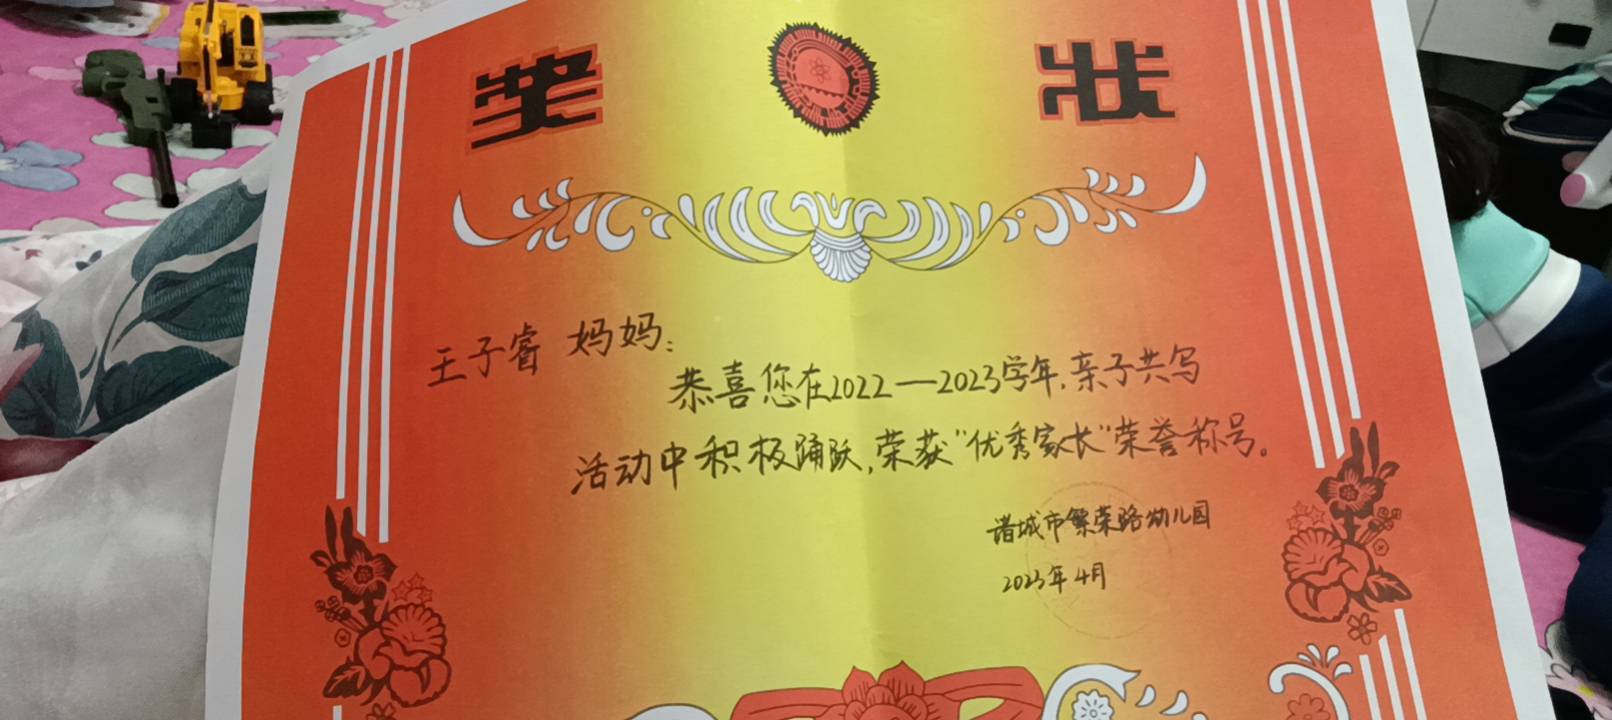 奖状
王子睿 妈妈:
恭喜您在2022—2023学年,亲子共写
活动中积极踊跃,荣获"优秀家长"荣誉称号。
诸城市繁荣路幼儿园
2023年4月